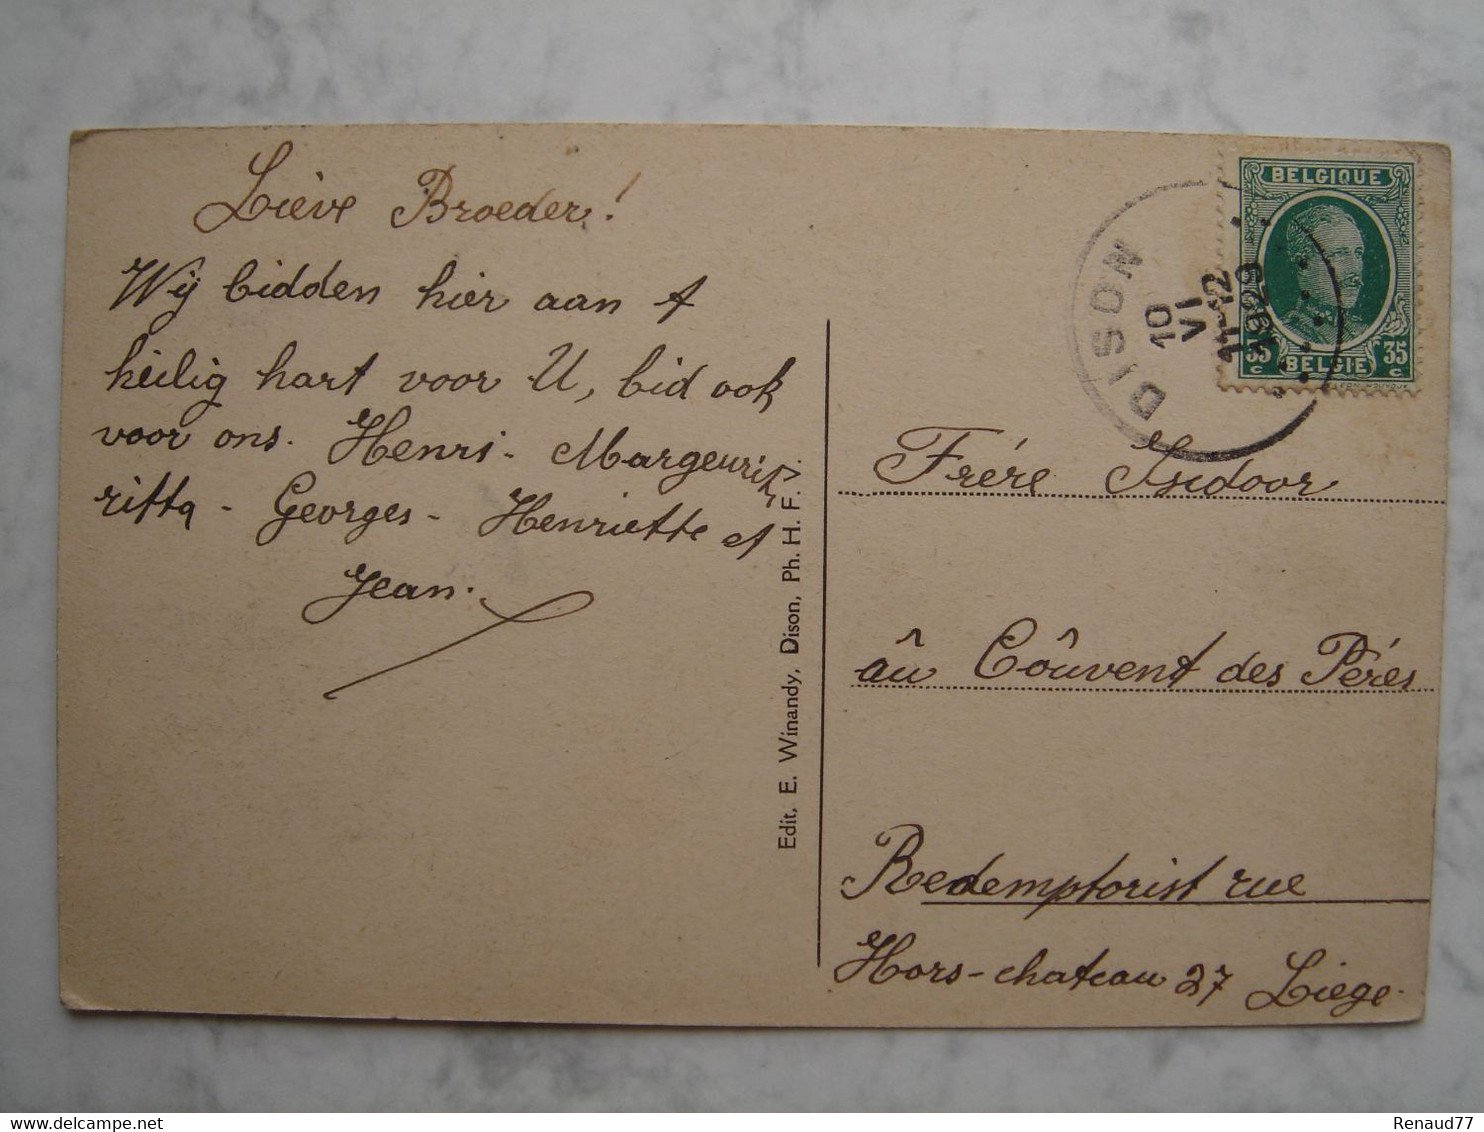 Liève Broeder!
Wij bidden hier aan t
heilig hart voor U, bid ook
voor ons. Henri - Margeurit
ritta - Georges - Henriette et
Jean.
Edit, E. Winandy, Dison, Ph. H. F. V.
DISON
10
VI
11-12
1929
BELGIQUE
35 BELGIE 35
c c
Frére Isidoor
âu Côuvent des Péres
Redemptorist rue
Hors-chateau 27 Liége.
delcampe.net
Renaud77